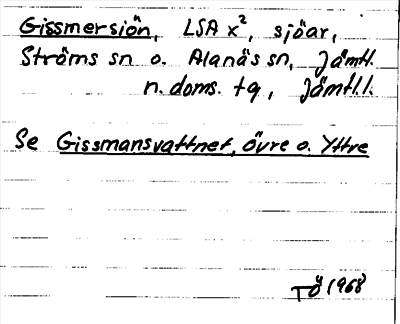 Gissmersiön, LSA x², sjöar,
Ströms sn o. Alanäs sn, Jämtl.
n. doms. tg, Jämtl.l.
Se Gissmansvattnet, övre o. Yttre
TÖ 1968